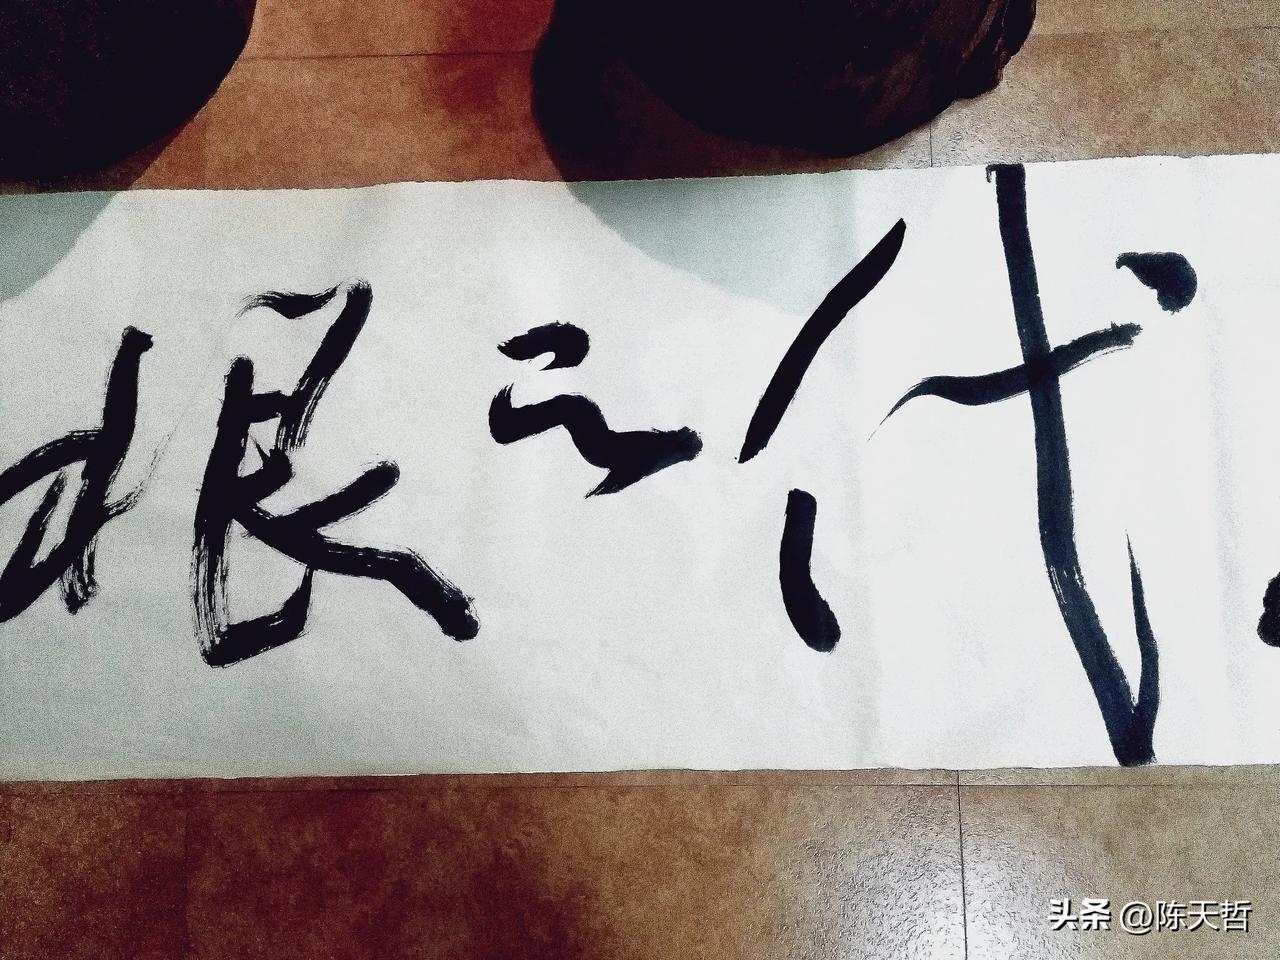 代之根
头条 @陈天哲